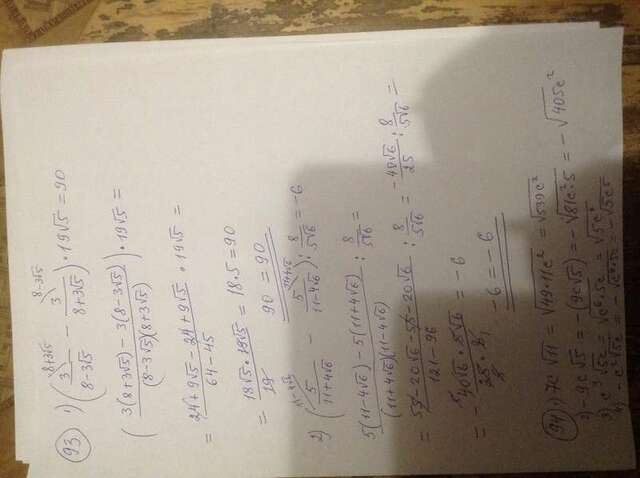 93 1) (3/(8-3√5) ^8+3√5 - 3/(8+3√5) ^8-3√5) · 19√5 = 90
((3(8+3√5) - 3(8-3√5))/((8-3√5)(8+3√5))) · 19√5 =
= (24+9√5-24+9√5)/(64-45) · 19√5 =
= (18√5 · 19√5)/19 = 18·5 = 90
90 = 90
2) (5/(11+4√6) ^11-4√6 - 5/(11-4√6) ^11+4√6) : 8/(5√6) = -6
(5(11-4√6) - 5(11+4√6))/((11+4√6)(11-4√6)) : 8/(5√6) =
= (55-20√6-55-20√6)/(121-96) : 8/(5√6) = (-40√6)/25 : 8/(5√6) =
= -(40√6 · 5√6)/(25 · 8) = -6
-6 = -6
94 1) 7c √11 = √(49·11c²) = √(539c²)
2) -9c √5 = -(9c√5) = -√(81c²·5) = -√(405c²)
3) c³ √5c = √(c⁶·5c) = √(5c⁷)